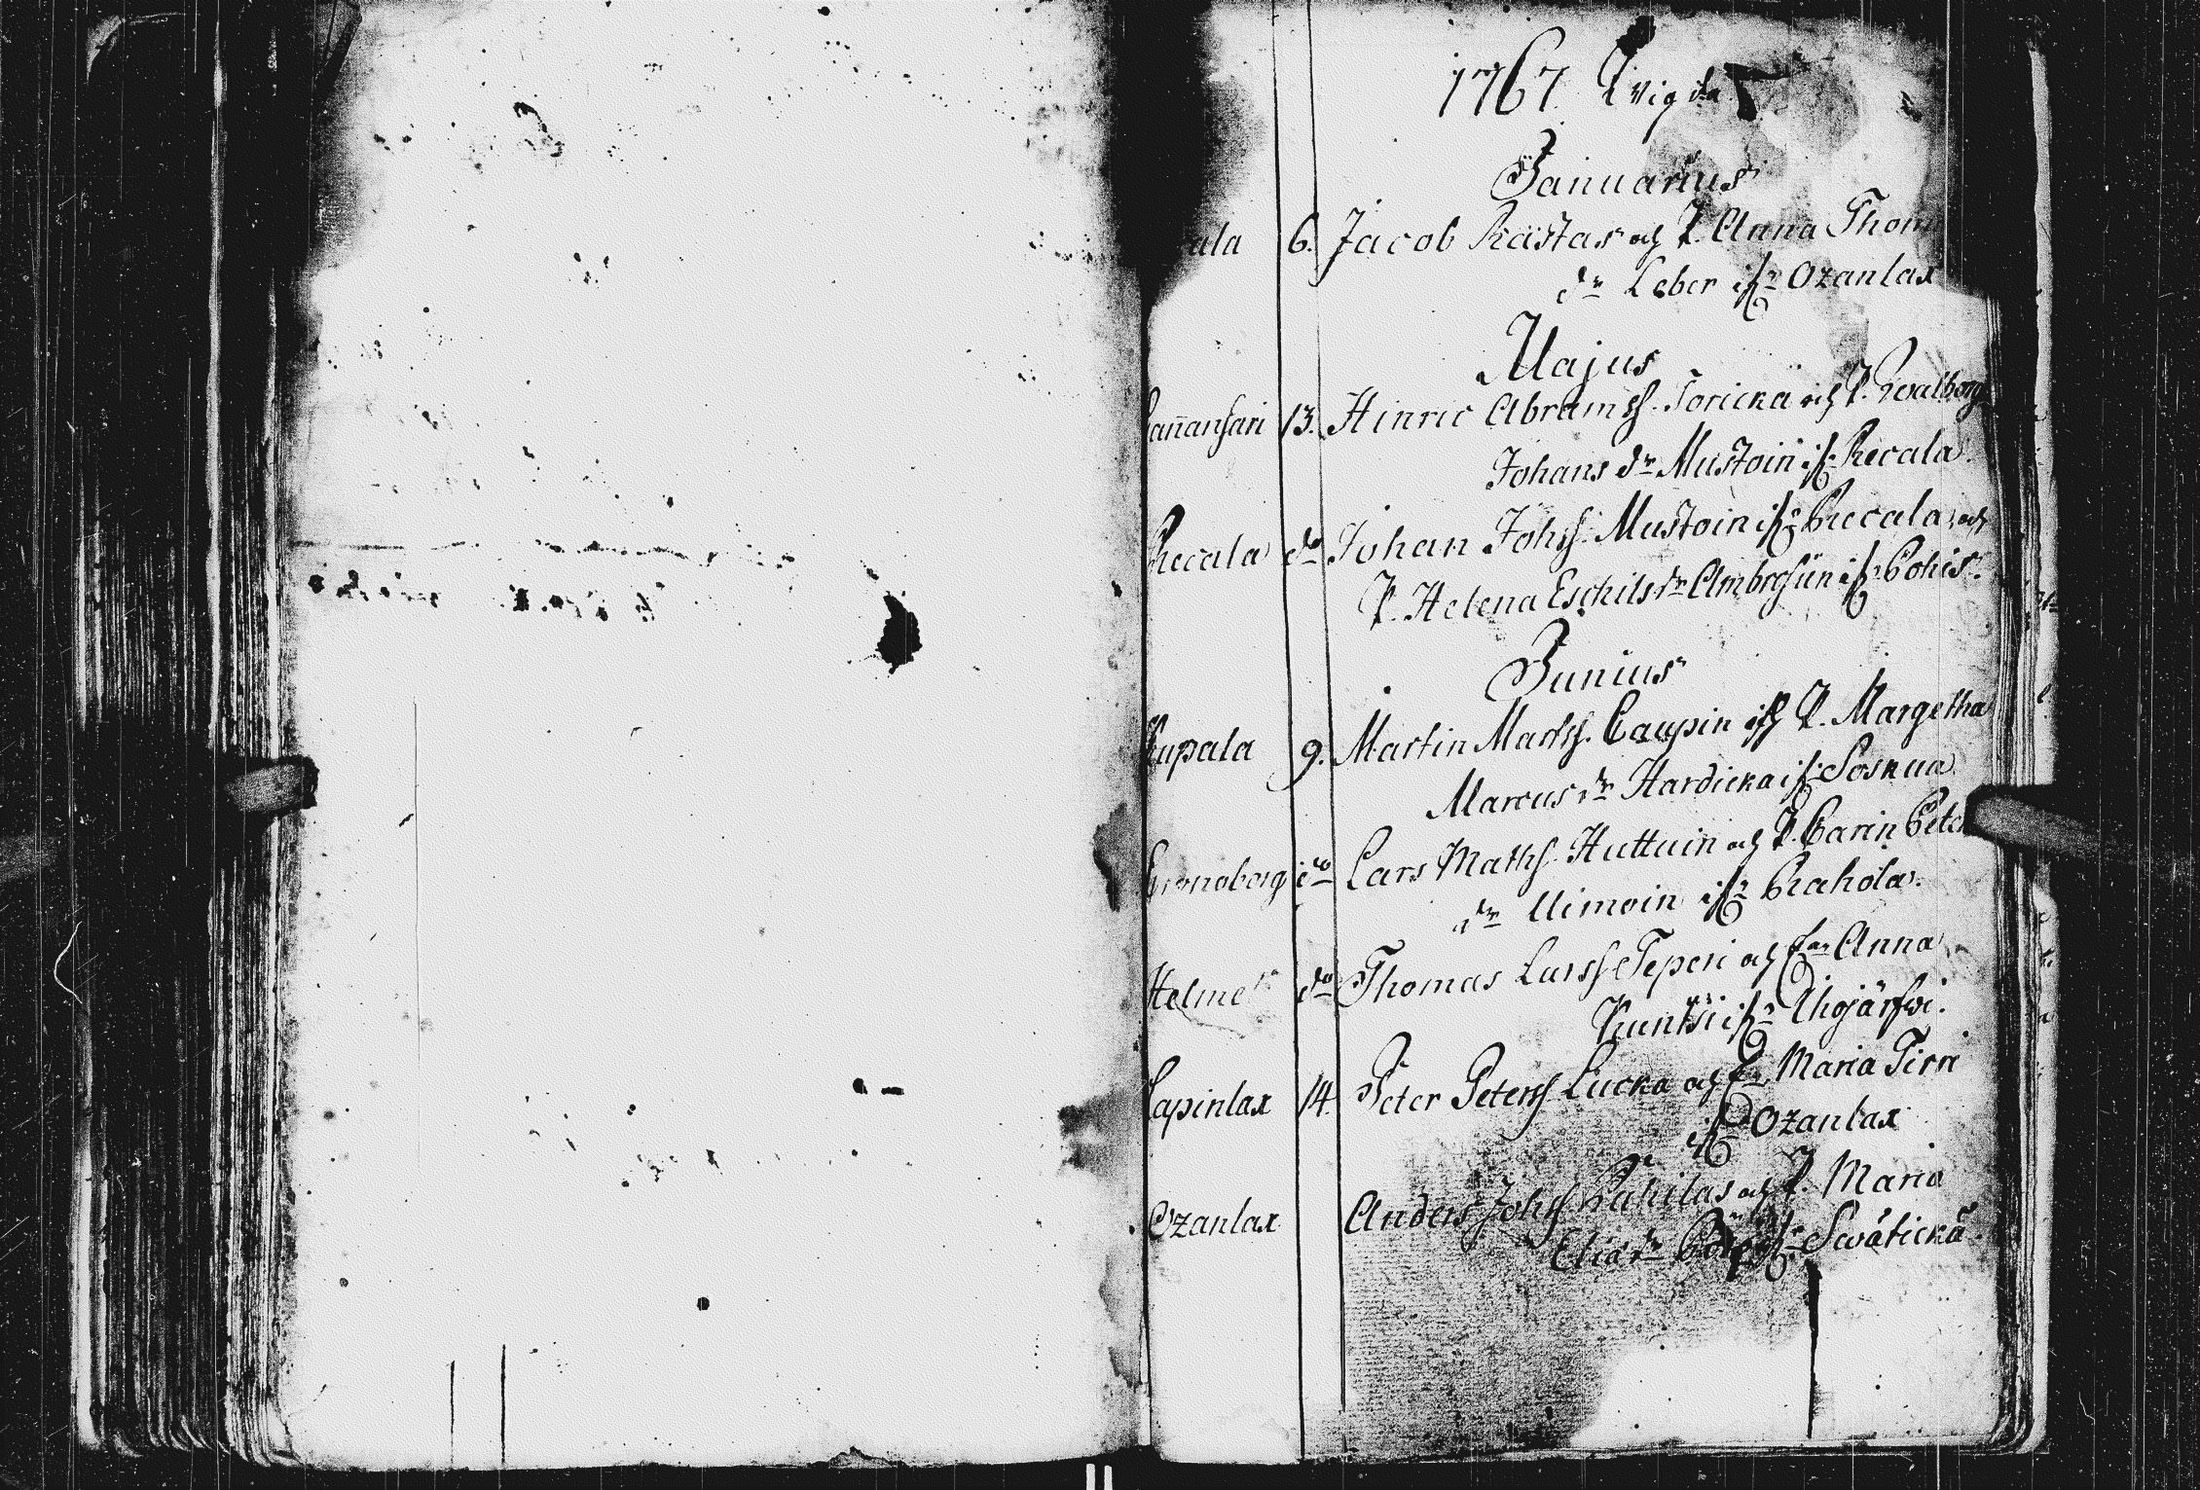 1767 Wigda
Januarius
ala 6. Jacob Rästas och P. Anna Thom
dr Leber ifr Ozanlax
Majus
13. Hinric Abramss. Toricka och P. Walborg
Johans dr Mustoin ifr Recala
Recala do Johan Johss. Mustoin ifr Recala, och
P. Helena Eschils dr Ambrosiin ifr
Junius
9. Martin Martss. Caupin och P. Margetha
Marcus dr Hardicka ifr Soskua
do Lars Maths. Huttuin och P. Carin Peter
dr Uimoin ifr Rahola.
Helme do Thomas Larss Teperi och Enk. Anna
Kuntsi ifr Uhojärfwi.
Lapinlax 14. Peter Peterss Lucka och Enk. Maria Tirri
ifr Ozanlax
Ozanlax Anders Johss och P. Maria
Elias dr ifr Swätickä